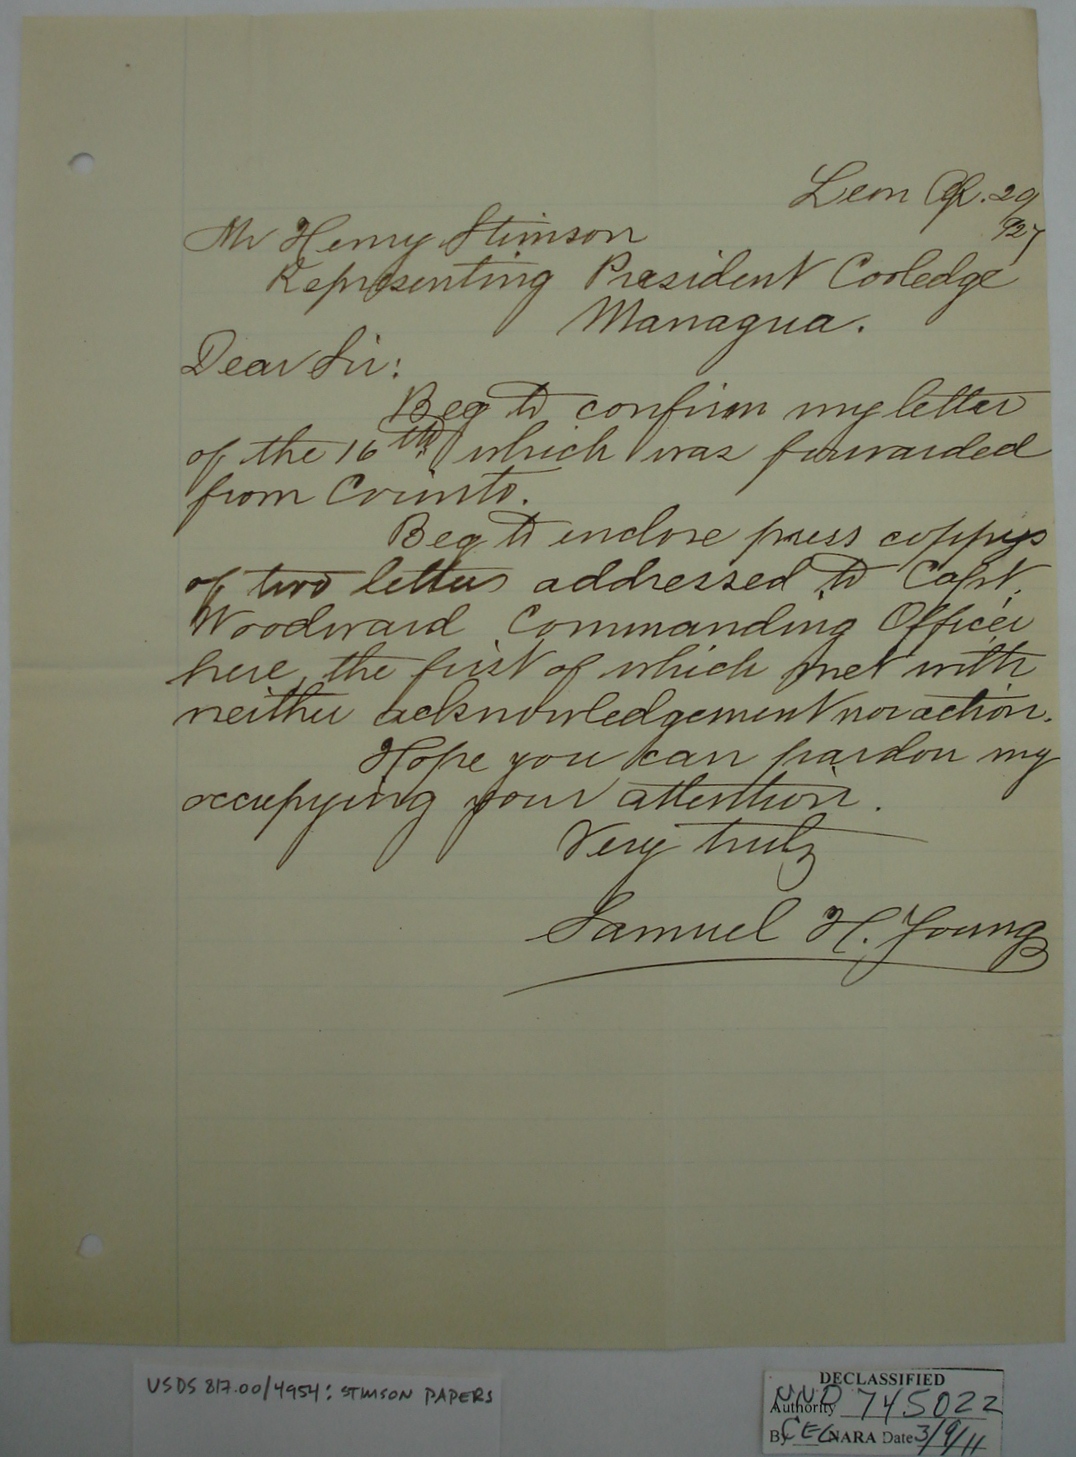 Leon Ap. 29
1927
Mr Henry Stimson
Representing President Cooledge
Managua.
Dear Sir:
Beg to confirm my letter
of the 16th which was forwarded
from Corinto.
Beg to enclose press coppys
of two letters addressed to Capt.
Woodward Commanding Officer
here, the first of which met with
neither acknowledgement nor action.
Hope you can pardon my
occupying your attention.
Very truly
Samuel H. Young
USDS 817.00/4954: STIMSON PAPERS
DECLASSIFIED
Authority NND 745022
By CEG NARA Date 3/9/11